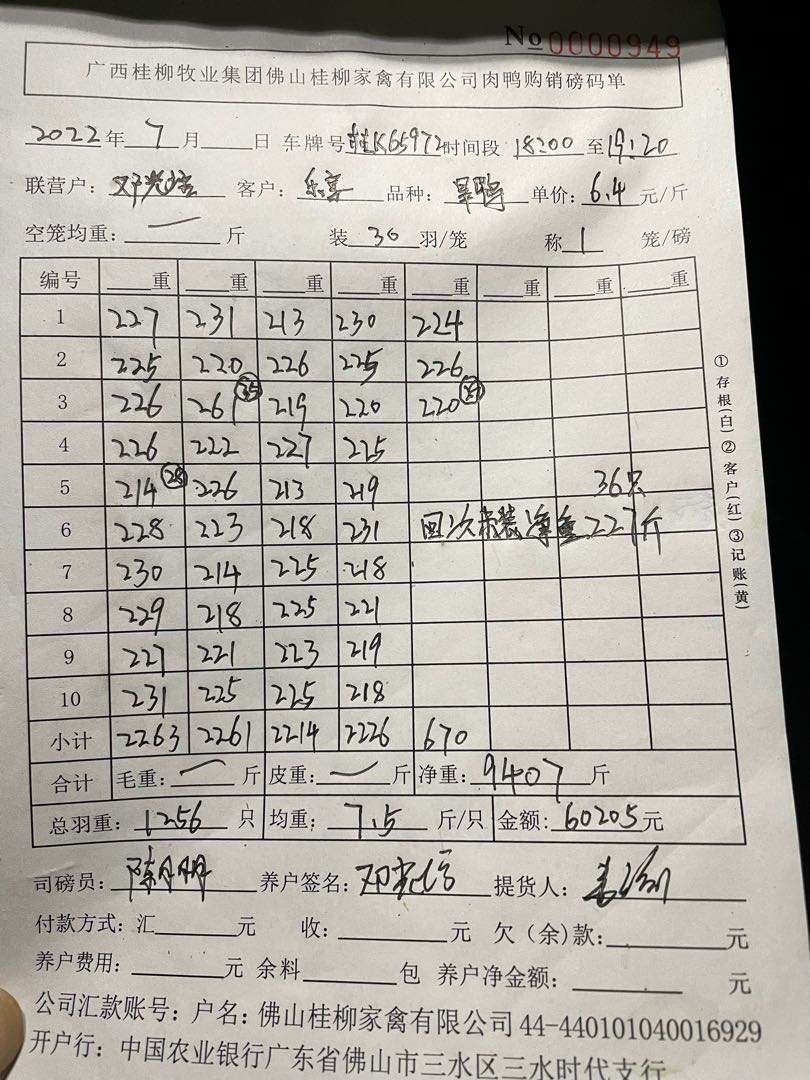 No 0000949
广西桂柳牧业集团佛山桂柳家禽有限公司肉鸭购销磅码单
2022年 7 月 日 车牌号 桂K65972 时间段 18:00 至 19:20
联营户: 客户: 乐享 品种: 单价: 6.4 元/斤
空笼均重: 一 斤 装 30 羽/笼 称 1 笼/磅
编号 重 重 重 重 重 重 重 重
1 227 231 213 230 224
2 225 220 226 225 226
3 226 261 35 219 220 220
4 226 222 227 225
5 214 28 226 213 219 36只
6 228 223 218 231 回次未装净重227斤
7 230 214 225 218
8 229 218 225 221
9 227 221 223 219
10 231 225 225 218
小计 2263 2261 2214 2226 670
合计 毛重: 一 斤 皮重: 一 斤 净重: 9407 斤
总羽重: 1256 只 均重: 7.5 斤/只 金额: 60205 元
司磅员: 陈月明 养户签名: 提货人:
付款方式: 汇 元 收: 元 欠(余)款: 元
养户费用: 元 余料 包 养户净金额: 元
公司汇款账号: 户名: 佛山桂柳家禽有限公司 44-440101040016929
开户行: 中国农业银行广东省佛山市三水区三水时代支行
①存根(白)②客户(红)③记账(黄)